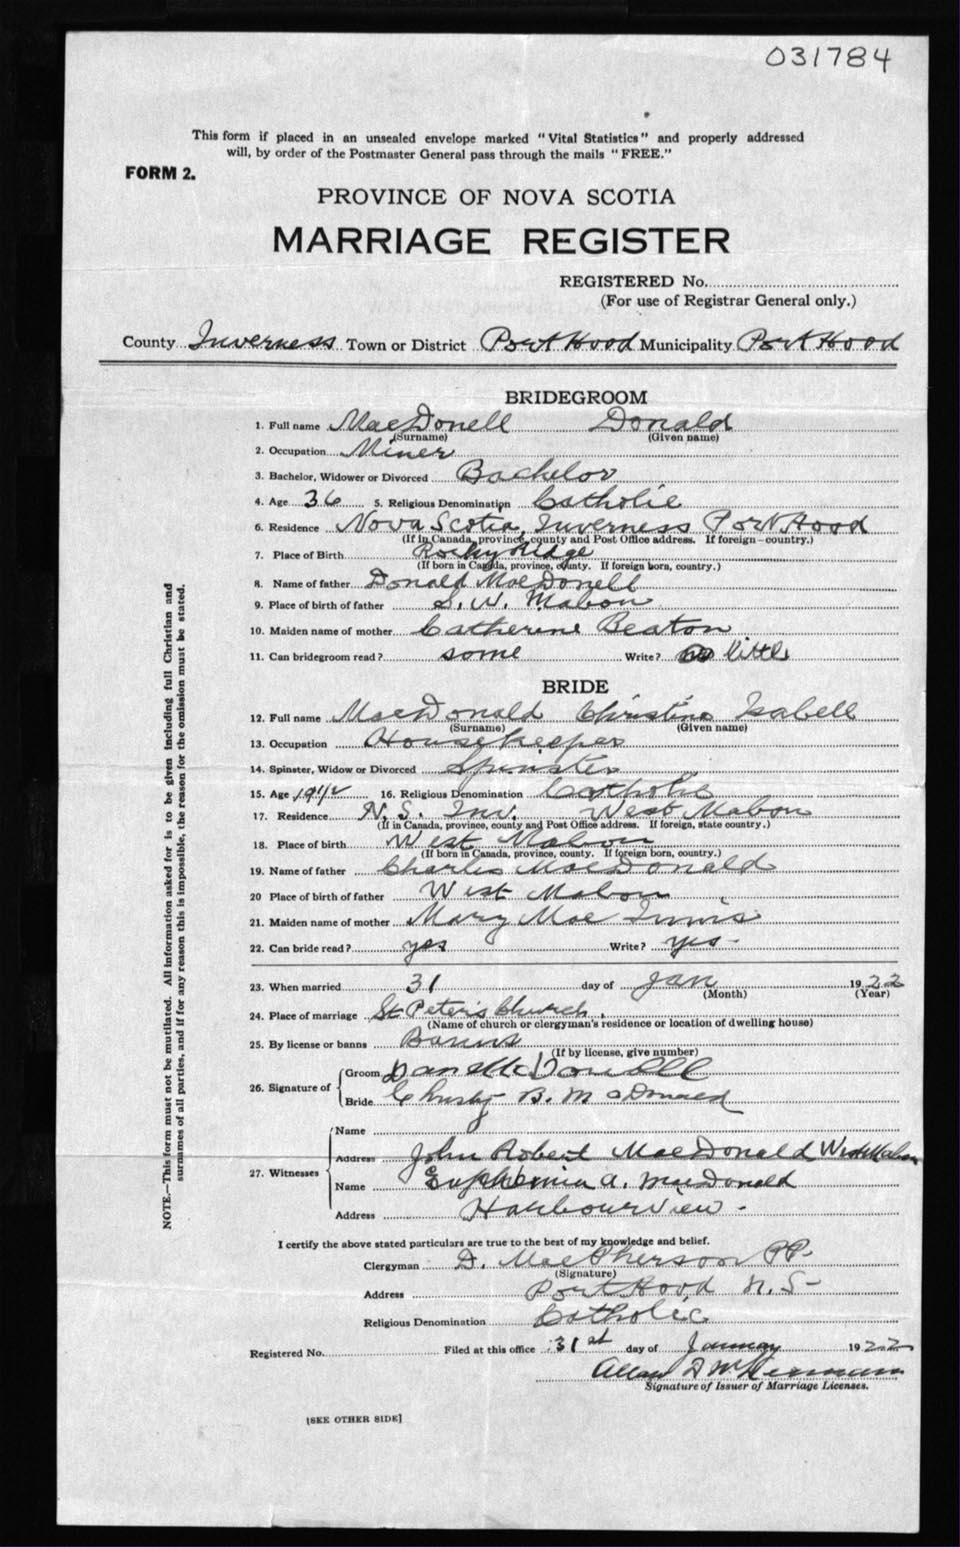 031784
This form if placed in an unsealed envelope marked "Vital Statistics" and properly addressed
will, by order of the Postmaster General pass through the mails "FREE."
FORM 2.
PROVINCE OF NOVA SCOTIA
MARRIAGE REGISTER
REGISTERED No.
(For use of Registrar General only.)
County Inverness Town or District Port Hood Municipality Port Hood
BRIDEGROOM
1. Full name MacDonell Donald
(Surname) (Given name)
2. Occupation Miner
3. Bachelor, Widower or Divorced Bachelor
4. Age 36 5. Religious Denomination Catholic
6. Residence Nova Scotia, Inverness Port Hood
(If in Canada, province, county and Post Office address. If foreign—country.)
7. Place of Birth Rocky Ridge
(If born in Canada, province, county. If foreign born, country.)
8. Name of father Donald MacDonell
9. Place of birth of father S. W. Mabou
10. Maiden name of mother Catherine Beaton
11. Can bridegroom read? some Write? little
BRIDE
12. Full name MacDonald Christina Isabell
(Surname) (Given name)
13. Occupation Housekeeper
14. Spinster, Widow or Divorced Spinster
15. Age 19 1/2 16. Religious Denomination Catholic
17. Residence N. S. Inv. West Mabou
(If in Canada, province, county and Post Office address. If foreign, state country.)
18. Place of birth West Mabou
(If born in Canada, province, county. If foreign born, country.)
19. Name of father Charles MacDonald
20 Place of birth of father West Mabou
21. Maiden name of mother Mary Mac Innis
22. Can bride read? yes Write? yes -
23. When married 31 day of Jan 1922
(Month) (Year)
24. Place of marriage St Peter's Church
(Name of church or clergyman's residence or location of dwelling house)
25. By license or banns Banns
(If by license, give number)
26. Signature of
Groom Dan McDonell
Bride Christy B. McDonald
27. Witnesses
Name
Address John Robert MacDonald West Mabou
Name Euphemia A. MacDonald
Address Harbourview -
I certify the above stated particulars are true to the best of my knowledge and belief.
Clergyman D. MacPherson PP.
(Signature)
Address Port Hood N. S-
Religious Denomination Catholic
Registered No. Filed at this office 31st day of January 1922
Allan D
Signature of Issuer of Marriage Licenses.
[SEE OTHER SIDE]
NOTE.—This form must not be mutilated. All information asked for is to be given including full Christian and
surnames of all parties, and if for any reason this is impossible, the reason for the omission must be stated.